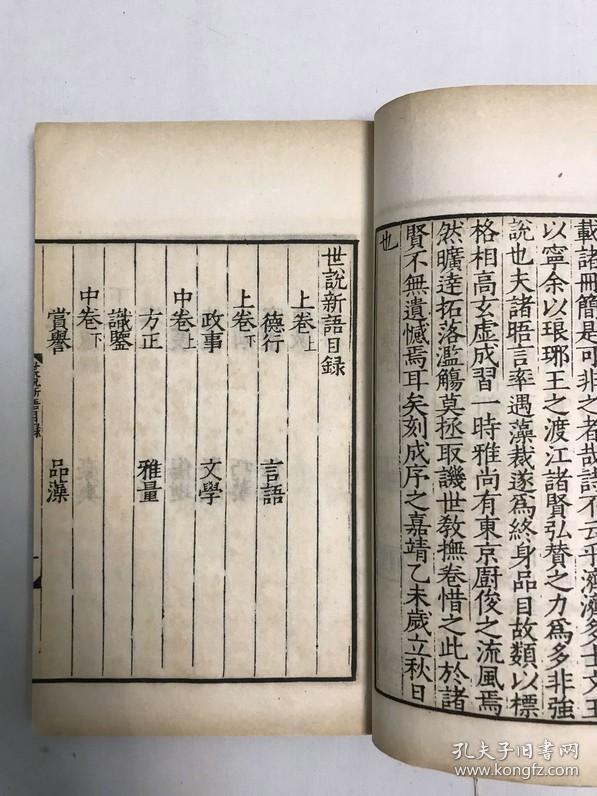 載諸冊簡是可非之者哉詩不云乎濟濟多士文王
以寧余以琅琊王之渡江諸賢弘贊之力為多非強
說也夫諸晤言率遇藻裁遂為終身品目故類以標
格相高玄虛成習一時雅尚有東京廚俊之流風焉
然曠達拓落濫觴莫拯取譏世教撫卷惜之此於諸
賢不無遺憾焉耳矣刻成序之嘉靖乙未歲立秋日
也
世說新語目録
上卷上
德行 言語
上卷下
政事 文學
中卷上
方正 雅量
識鑒
中卷下
賞譽 品藻
世說新語目録
孔夫子旧书网
www.kongfz.com